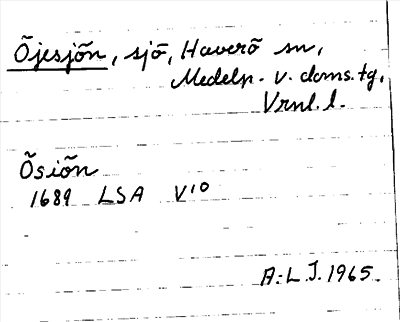 Öjesjön, sjö, Haverö sn,
Medelp. v. doms. tg,
Vrnl. l.
Ösiön
1689 LSA V¹⁰
A:L.J. 1965.